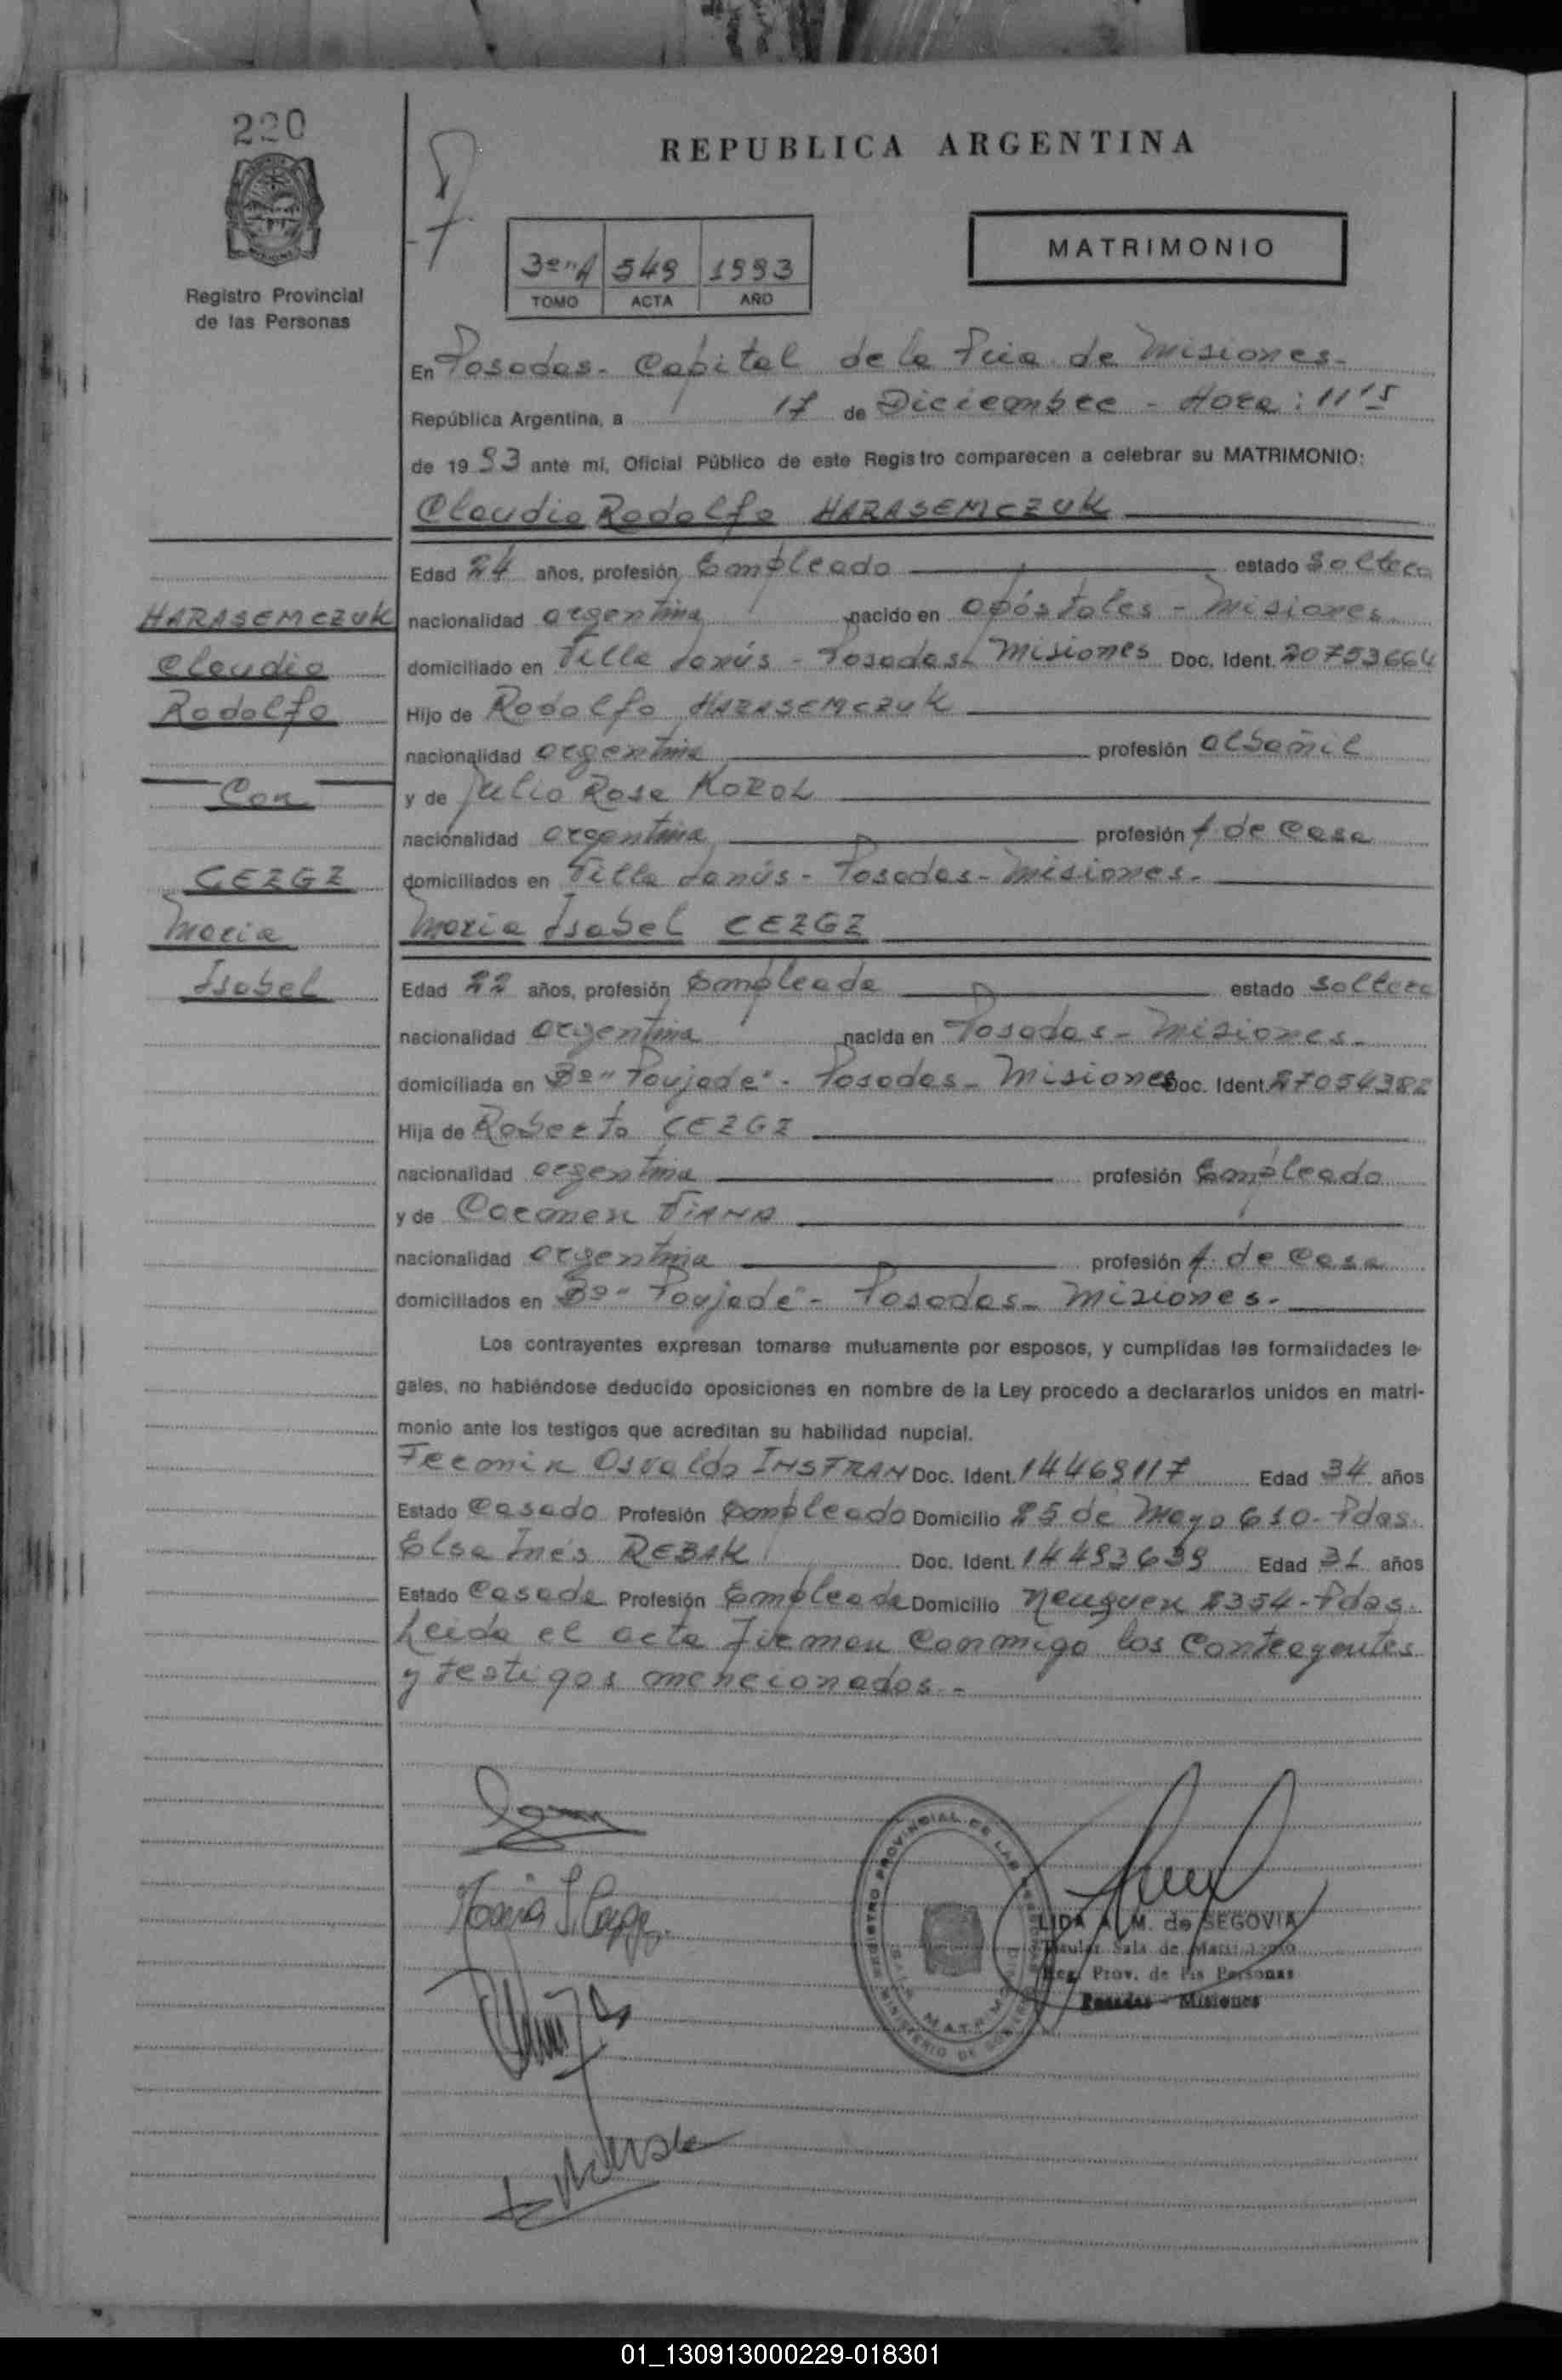 220
REPUBLICA ARGENTINA
MATRIMONIO
Registro Provincial
de las Personas
3º"A" 549 1993
TOMO ACTA AÑO
En Posadas - Capital de la Pcia. de Misiones -
República Argentina, a 17 de Diciembre - Hora: 11'15
de 1993 ante mi, Oficial Público de este Registro comparecen a celebrar su MATRIMONIO:
Claudio Rodolfo HARASEMCZUK
Edad 24 años, profesión Empleado estado Soltero
HARASEMCZUK
Claudio
Rodolfo
Con
CEZGZ
Maria
Isabel
nacionalidad argentina nacido en Apóstoles - Misiones.
domiciliado en Villa Lanús - Posadas - Misiones Doc. Ident. 20753664
Hijo de Rodolfo HARASEMCZUK
nacionalidad argentina profesión albañil
y de Julia Rosa KOROL
nacionalidad argentina profesión A. de Casa
domiciliados en Villa Lanús - Posadas - Misiones.
Maria Isabel CEZGZ
Edad 22 años, profesión Empleada estado Soltera
nacionalidad argentina nacida en Posadas - Misiones.
domiciliada en Bº" Poujade" - Posadas - Misiones Doc. Ident. 27054382
Hija de Roberto CEZGZ
nacionalidad argentina profesión Empleado
y de Carmen VIANA
nacionalidad argentina profesión A. de Casa
domiciliados en Bº" Poujade" - Posadas - Misiones.
Los contrayentes expresan tomarse mutuamente por esposos, y cumplidas las formalidades le-
gales, no habiéndose deducido oposiciones en nombre de la Ley procedo a declararlos unidos en matri-
monio ante los testigos que acreditan su habilidad nupcial.
Fermin Osvaldo INSFRAN Doc. Ident. 14469117 Edad 34 años
Estado Casado Profesión Empleado Domicilio 25 de Mayo 610 - Pdas.
Elsa Inés REBAK Doc. Ident. 14493639 Edad 31 años
Estado Casada Profesión Empleada Domicilio Neuquen 2354 - Pdas.
Leida el acta firman conmigo los Contrayentes
y testigos mencionados -
REGISTRO PROVINCIAL DE LAS PERSONAS
SALA MATRIMONIO
MINISTERIO DE GOBIERNO
LIDA A. M. de SEGOVIA
Titular Sala de Matrimonio
Reg. Prov. de las Personas
Posadas - Misiones
01_130913000229-018301